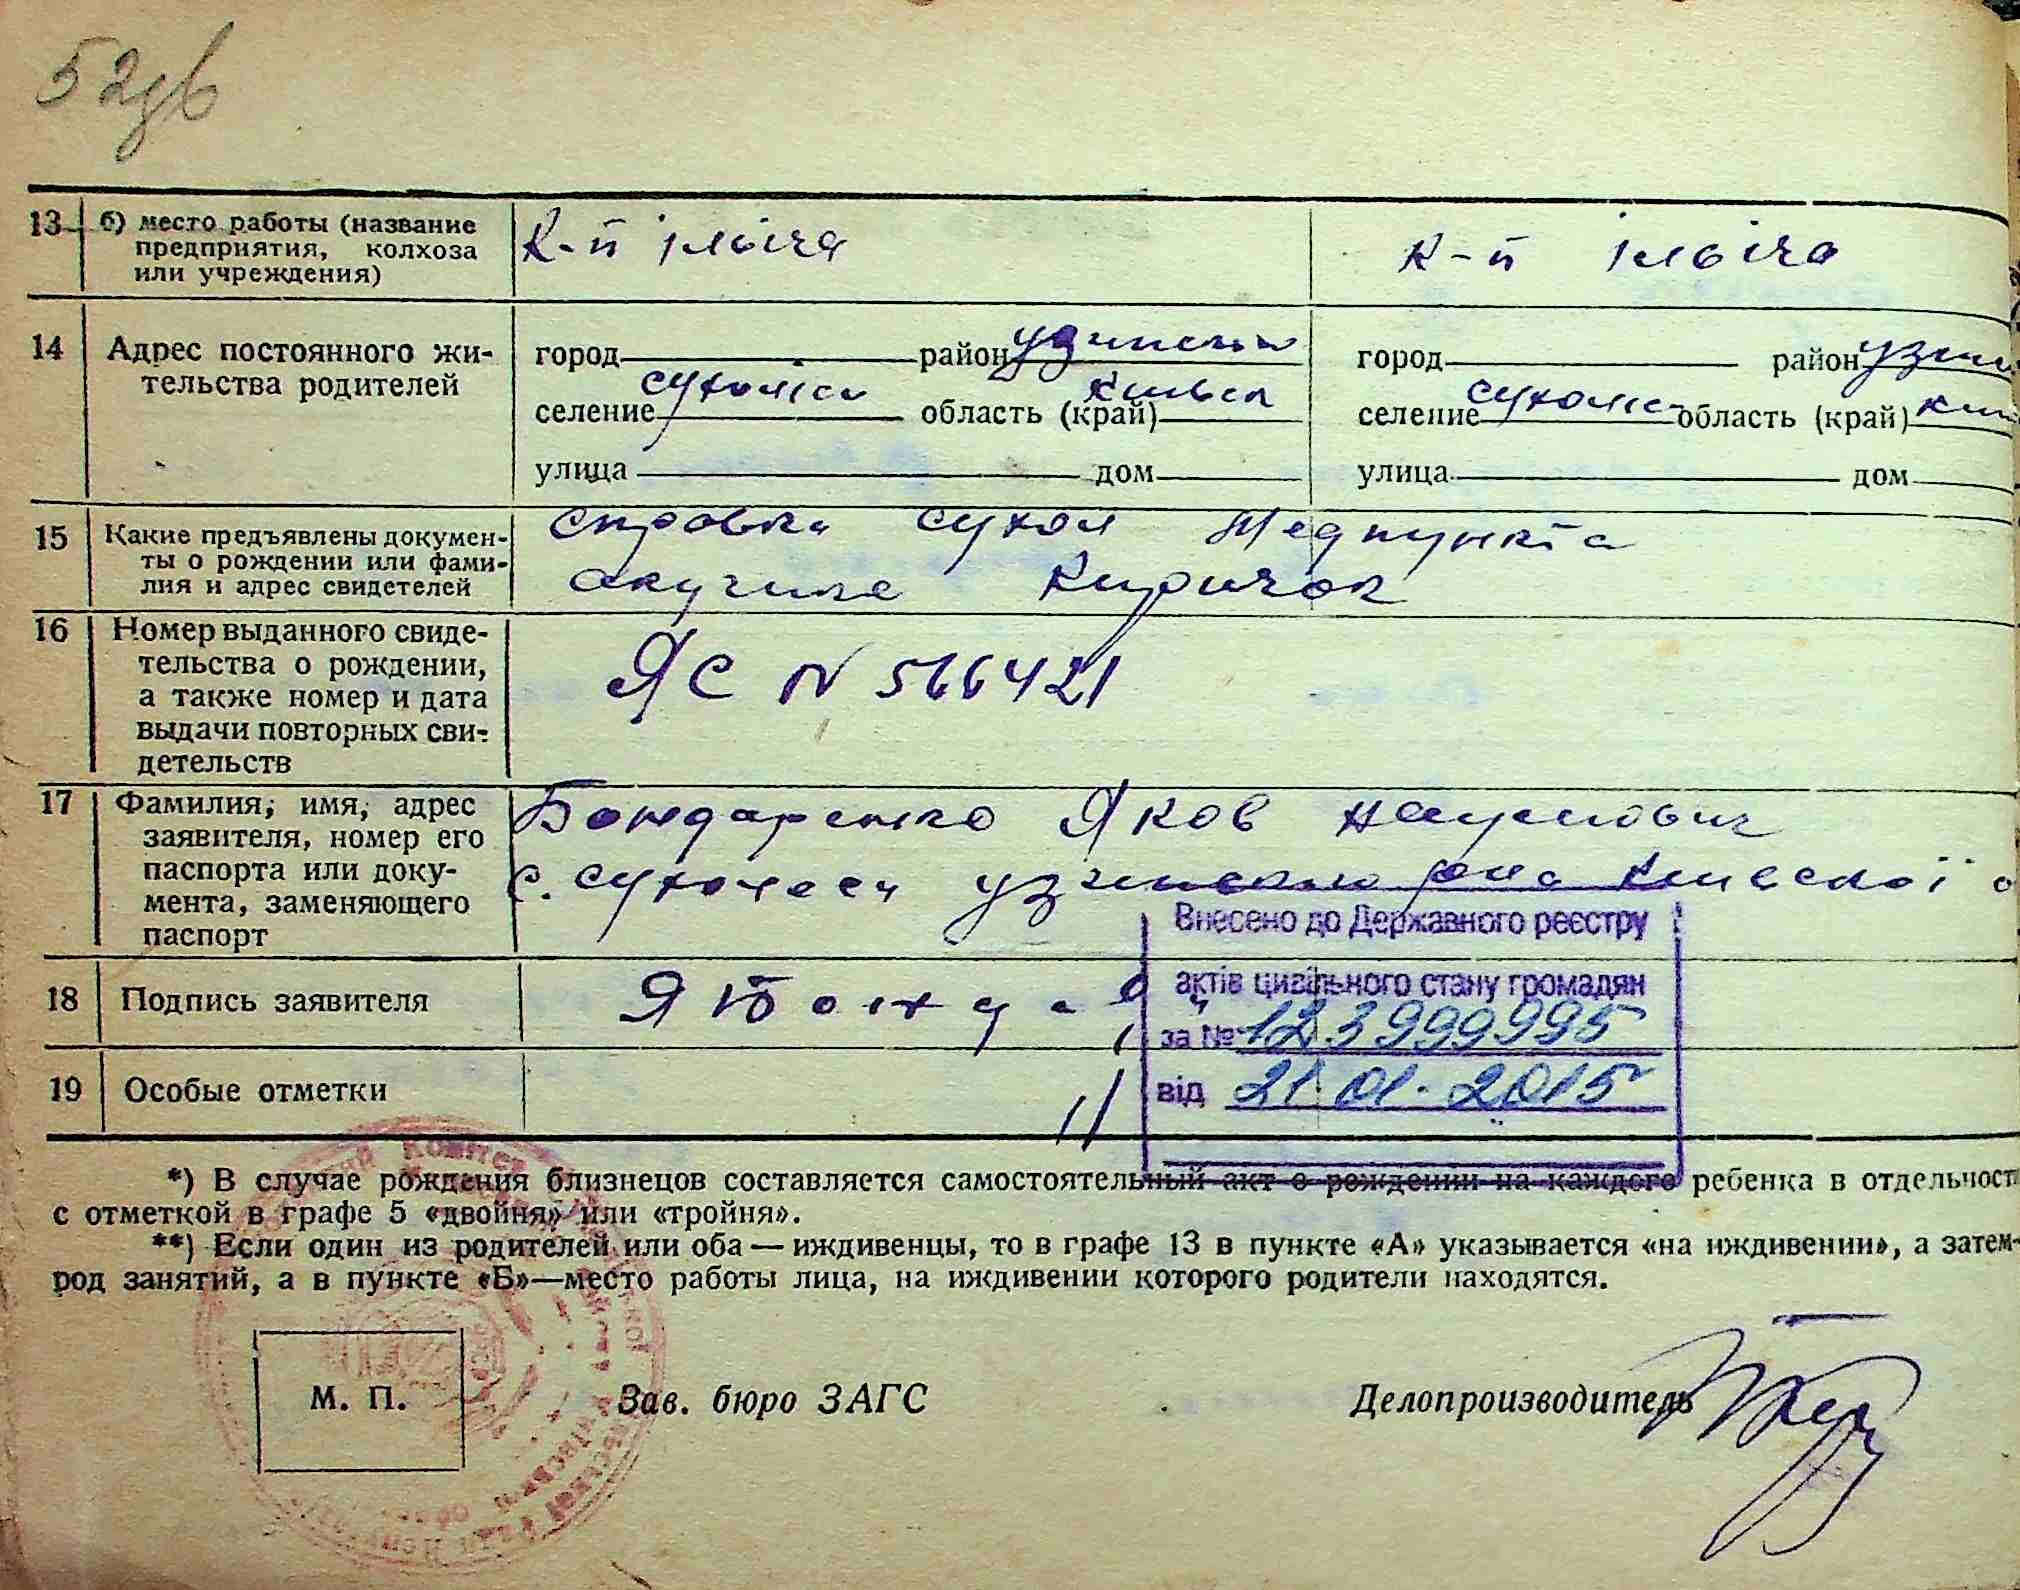 52зв
13 б) место работы (название
предприятия, колхоза
или учреждения)
К-п Ілыіча К-п Ілыіча
14 Адрес постоянного жи-
тельства родителей
город район узинский город район узин
селение сухоліси область (край) Киевск селение сухоліси область (край) Ки
улица дом улица дом
15 Какие предъявлены докумен-
ты о рождении или фами-
лия и адрес свидетелей
справка сухол медпункта
акушерка Киричок
16 Номер выданного свиде-
тельства о рождении,
а также номер и дата
выдачи повторных сви-
детельств
ЯС N 566421
17 Фамилия, имя, адрес
заявителя, номер его
паспорта или доку-
мента, заменяющего
паспорт
Бондаренко Яков Наумович
с. сухолеси узинского рна Киевскої о
Внесено до Державного реєстру
актів цивільного стану громадян
за № 123999995
від 21 01. 2015
18 Подпись заявителя
19 Особые отметки
*) В случае рождения близнецов составляется самостоятельный акт о рождении на каждого ребенка в отдельност
с отметкой в графе 5 «двойня» или «тройня».
**) Если один из родителей или оба — иждивенцы, то в графе 13 в пункте «А» указывается «на иждивении», а затем-
род занятий, а в пункте «Б»—место работы лица, на иждивении которого родители находятся.
М. П. Зав. бюро ЗАГС Делопроизводитель